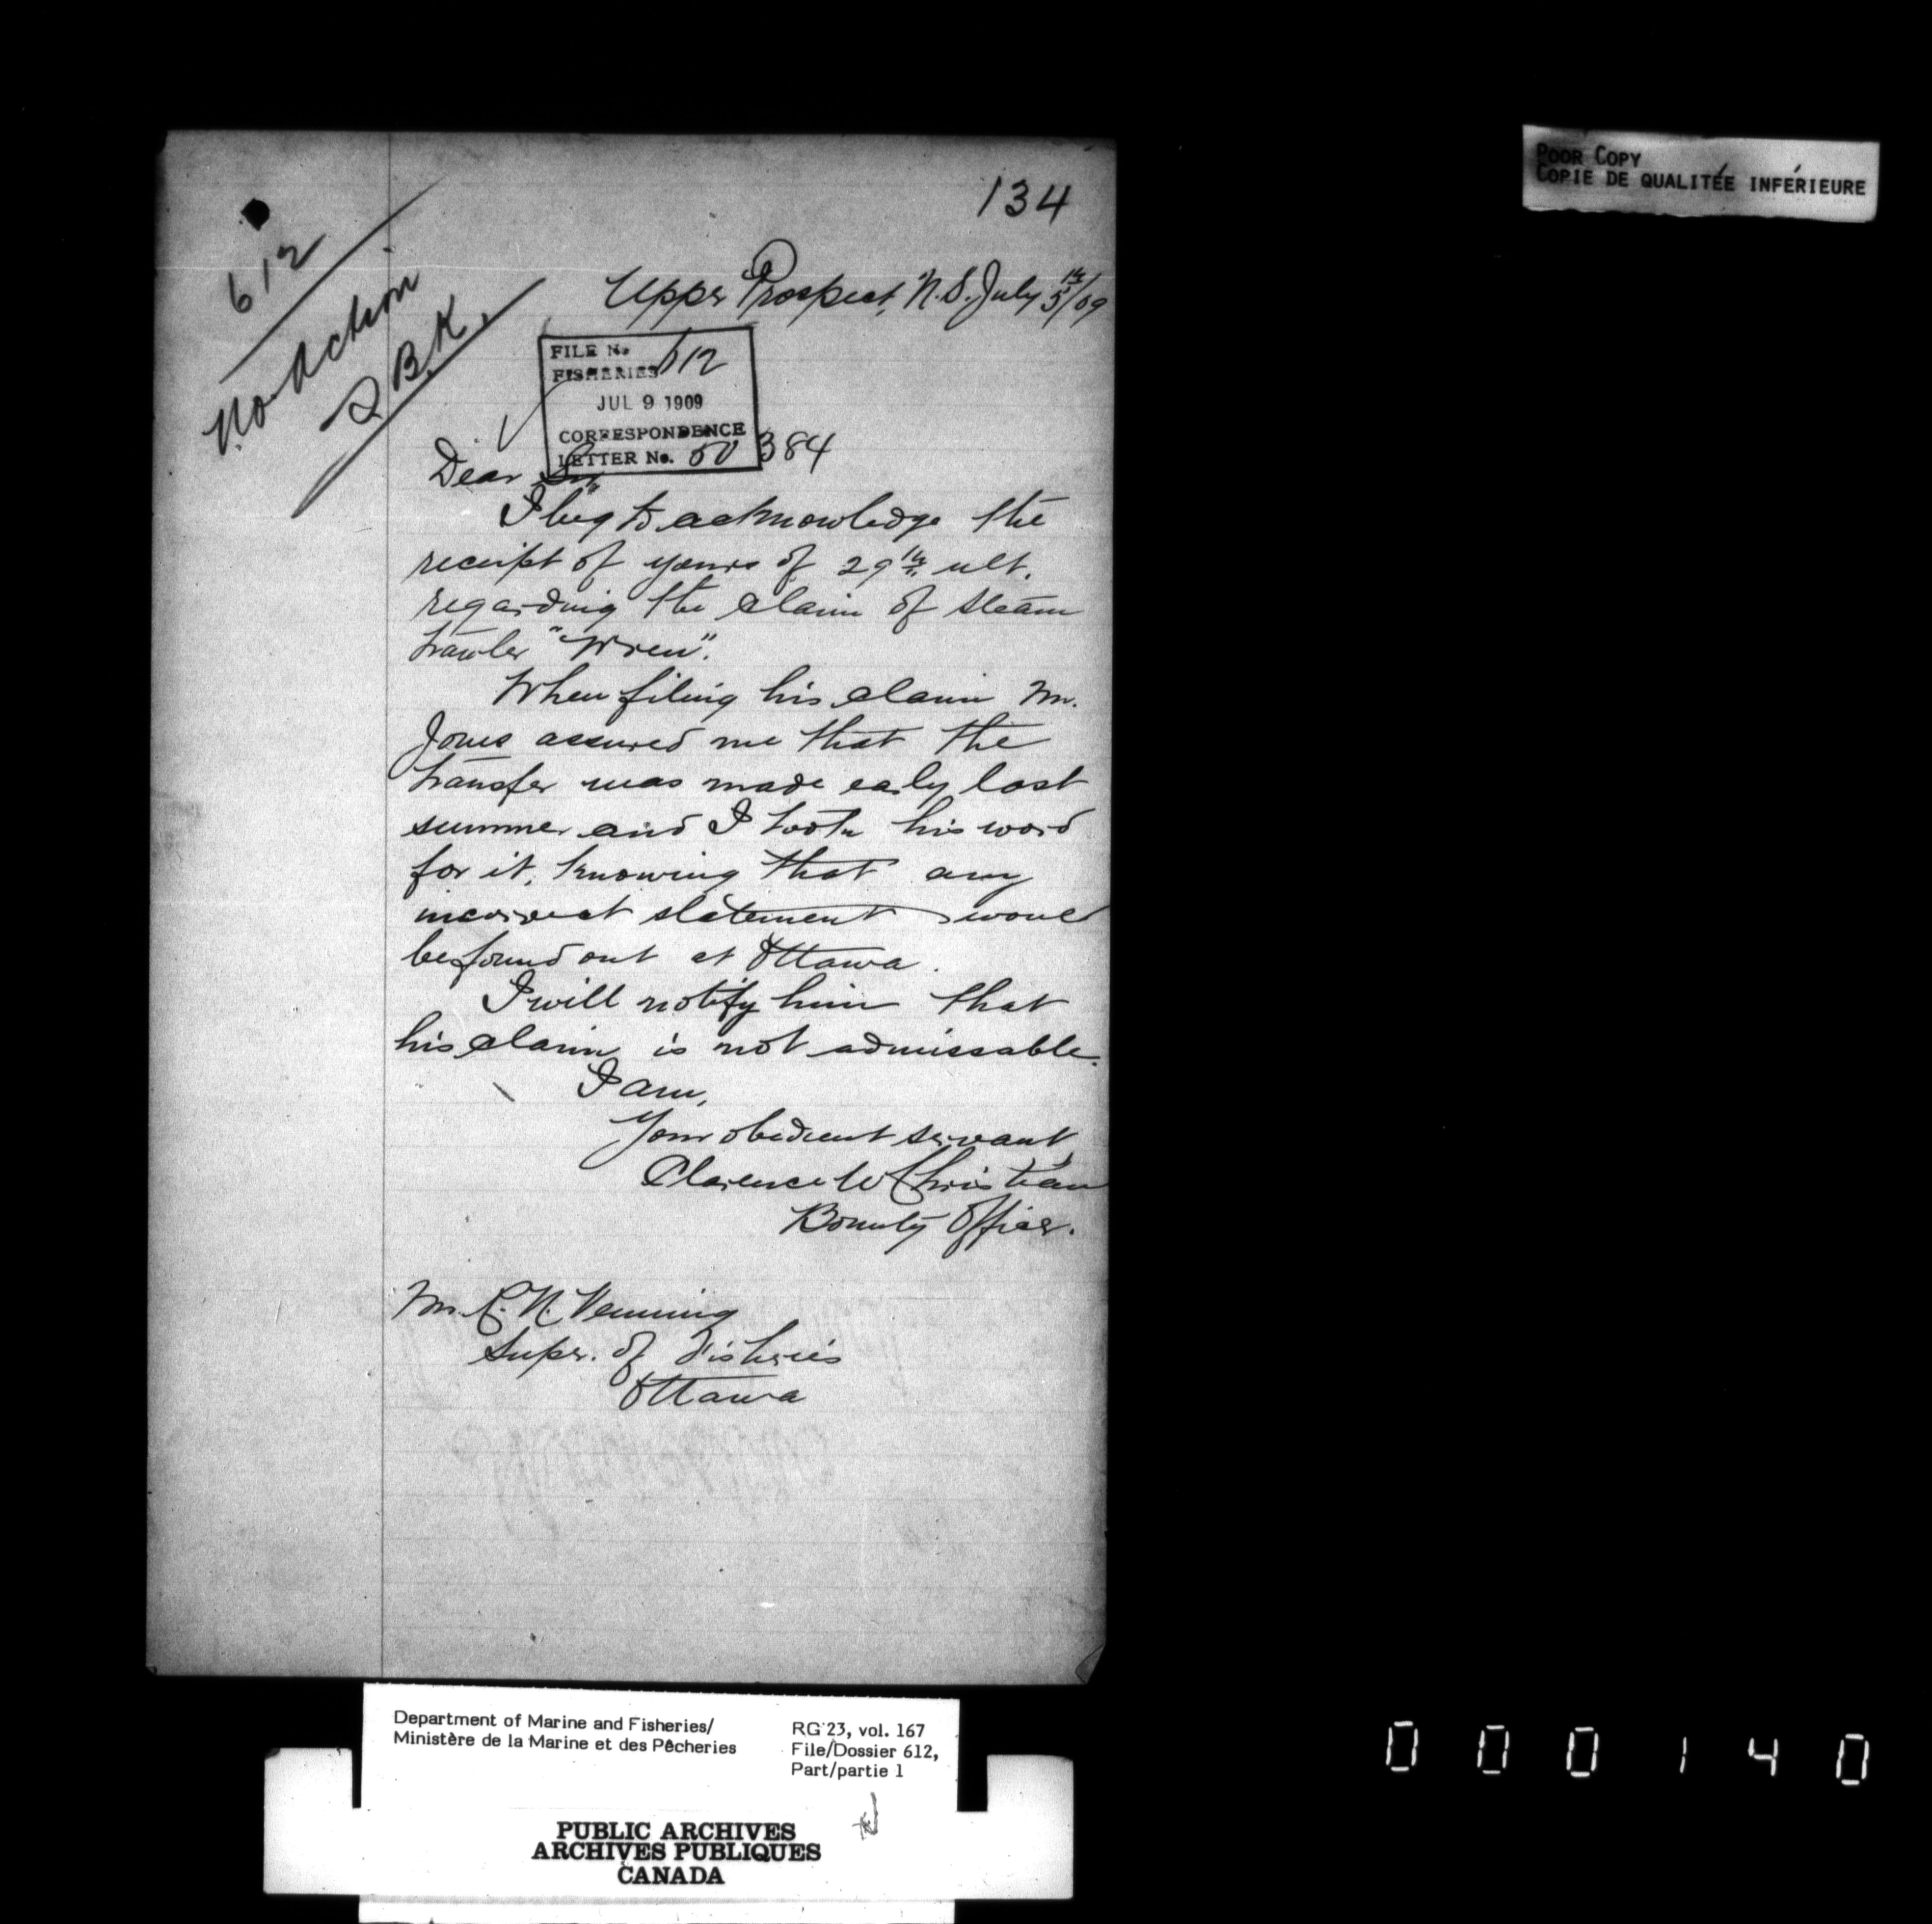 134
POOR COPY
COPIE DE QUALITÉE INFÉRIEURE
612
No Action
Upper Prospect, N.S. July 5th/09
FILE No. 612
FISHERIES
JUL 9 1909
CORRESPONDENCE
LETTER No. 50384
Dear Sir,
I beg to acknowledge the
receipt of yours of 29th ult.
regarding the claim of steam
trawler "Wren".
When filing his claim Mr.
Jones assured me that the
transfer was made early last
summer and I took his word
for it, knowing that any
incorrect statement would
be found out at Ottawa.
I will notify him that
his claim is not admissable.
I am,
Your obedient servant,
Clarence W Christian
Bounty Officer.
Mr. R. N. Venning
Super. of Fisheries
Ottawa
Department of Marine and Fisheries/
Ministère de la Marine et des Pêcheries
RG 23, vol. 167
File/Dossier 612,
Part/partie 1
PUBLIC ARCHIVES
ARCHIVES PUBLIQUES
CANADA
000140